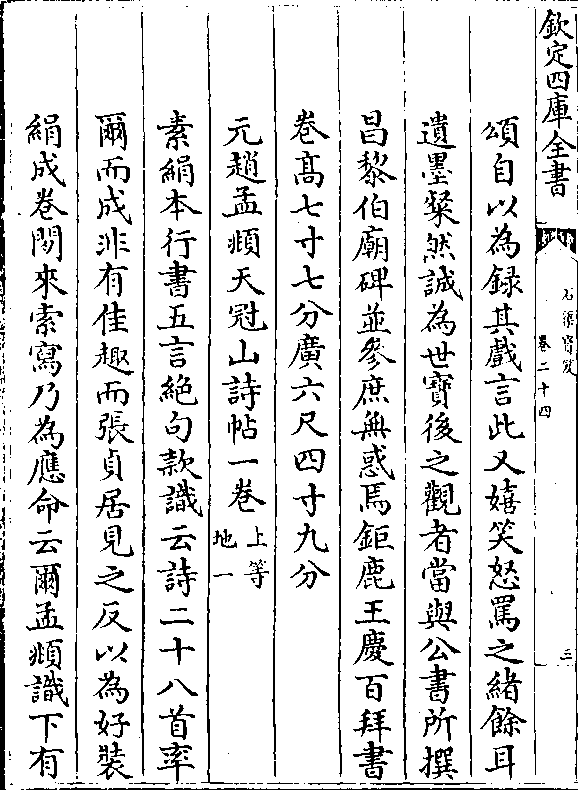 欽定四庫全書
石渠寶笈
卷二十四
三
頌自以為録其戲言此又嬉笑怒罵之緒餘耳
遺墨粲然誠為世寶後之觀者當與公書所撰
昌黎伯廟碑並參庶無惑焉鉅鹿王慶百拜書
卷高七寸七分廣六尺四寸九分
元趙孟頫天冠山詩帖一卷上等地一
素絹本行書五言絶句款識云詩二十八首率
爾而成非有佳趣而張貞居見之反以為好裝
絹成卷閑來索寫乃為應命云爾孟頫識下有